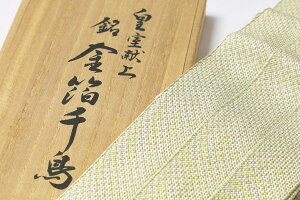 皇室献上
銘 金箔千鳥